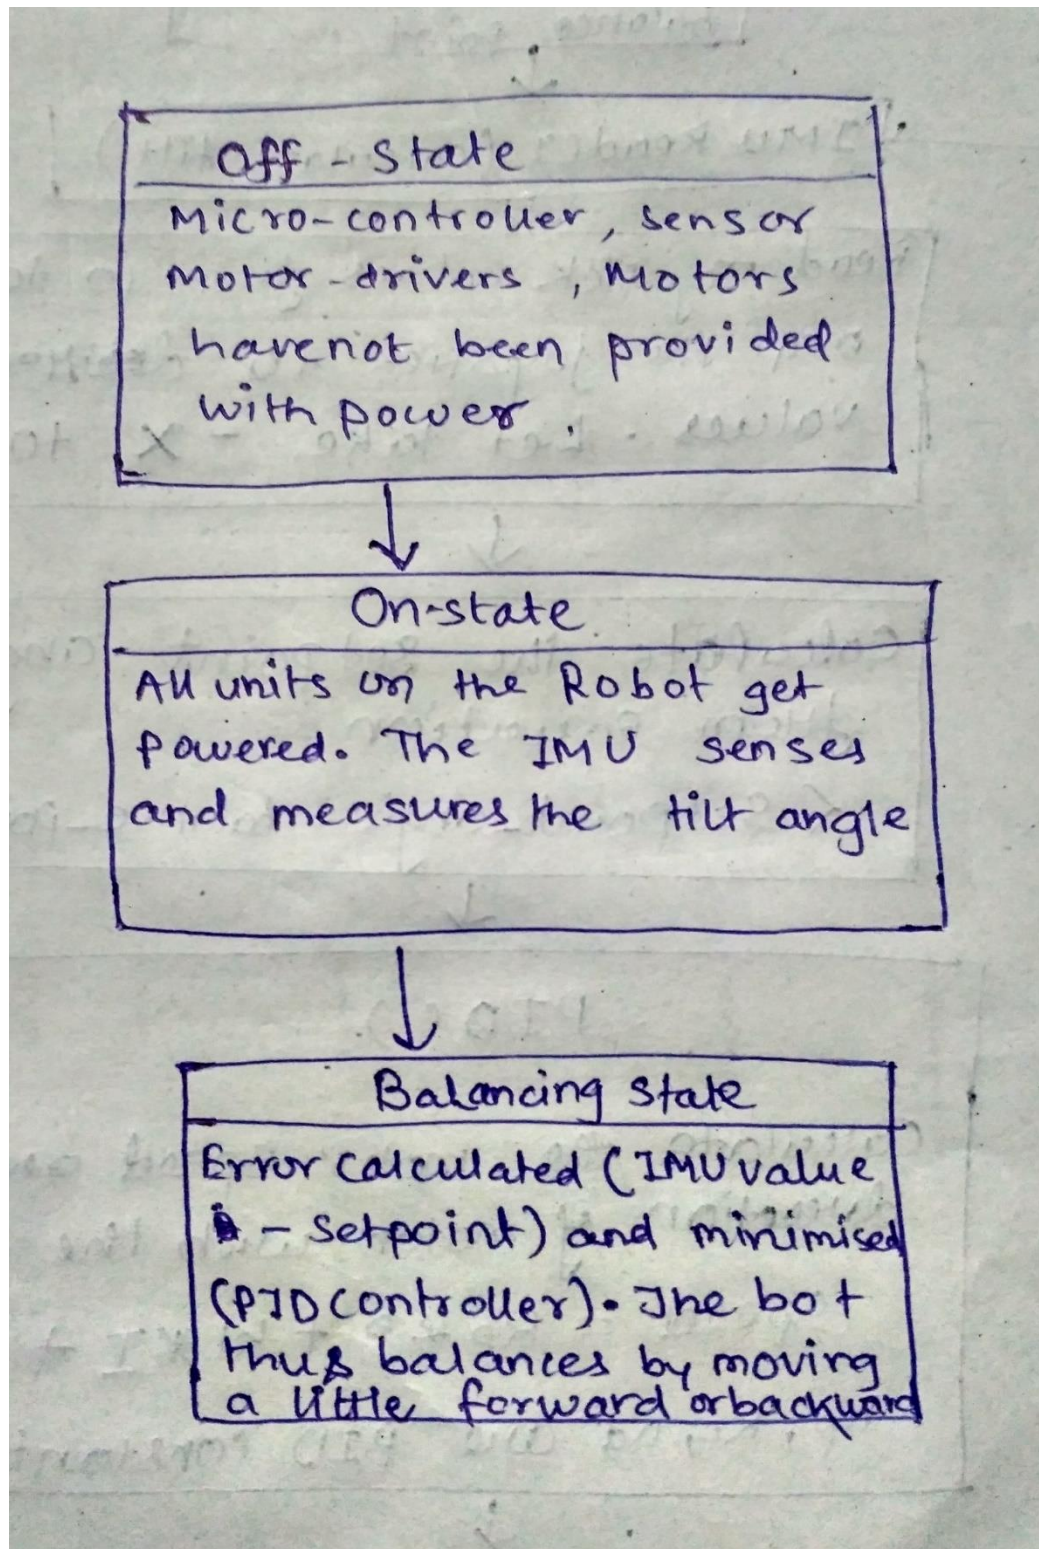 Off - State
Micro-controller, sensor
Motor-drivers, Motors
havenot been provided
with power.
On-state
All units on the Robot get
powered. The IMU senses
and measures the tilt angle
Balancing State
Error calculated (IMU value
- setpoint) and minimised
(PID controller). The bot
thus balances by moving
a little forward or backward